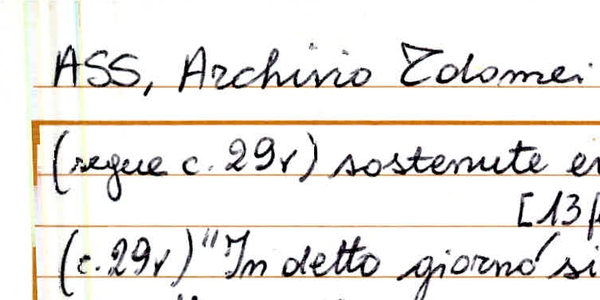 ASS, Archivio Tolomei
(segue c. 29v) sostenute
[13
(c. 29v) "In detto giorno si